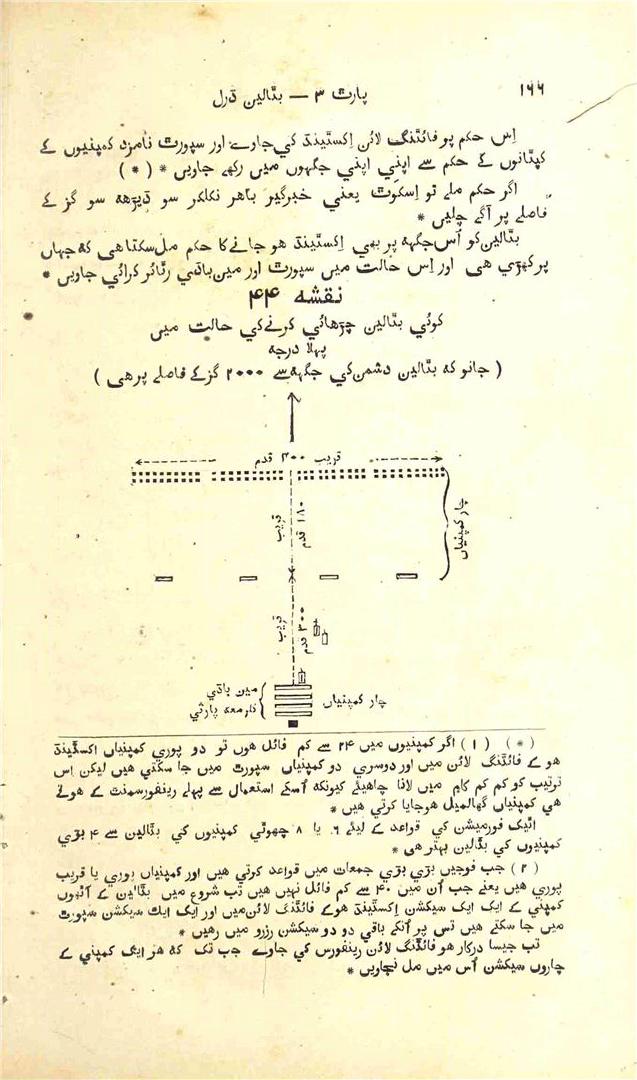 ۱۶۶
پارٹ ۳ — بٹالین ڈرل
اِس حکم پر فائٹنگ لائن اِکسٹینڈ کي جاوے اور سپورٹ نامزد کمپنیوں کے
کپتانوں کے حکم سے اپني اپني جگہوں میں رکھے جاویں * ( * )
اگر حکم ملے تو اِسکوٹ یعني خبرگیر باھر نکلکر سو ڈیڑھہ سو گز کے
فاصلے پر آگے چلیں *
بٹالین کو اُس جگہہ پر بھي اِکسٹینڈ ھو جانے کا حکم مل سکتا ھی کہ جہاں
پر کھڑي ھی اور اِس حالت میں سپورٹ اور مین باڈي رٹائر کرائي جاویں *
نقشہ ۴۴
کوئي بٹالین چڑھائي کرنے کي حالت میں
پہلا درجہ
( جانو کہ بٹالین دشمن کي جگہہ سے ۲۰۰۰ گز کے فاصلے پر ھی )
قریب ۳۰۰ قدم
قریب ۱۸۰ قدم
چار کمپنیاں
قریب ۳۰۰ قدم
مین باڈي
چار کمپنیاں
( * ) ( ۱ ) اگر کمپنیوں میں ۲۴ سے کم فائل ھوں تو دو پوري کمپنیاں اکسٹینڈ
ھو کے فائٹنگ لائن میں اور دوسري دو کمپنیاں سپورٹ میں جا سکتي ھیں لیکن اس
ترتیب کو کم کم کام میں لانا چاھیئے کیونکہ اُسکے استعمال سے پہلے رینفورسمنٹ کے ھوتے
ھي کمپنیاں گھالمیل ھرجایا کرتي ھیں *
اٹیک فورمیشن کي قواعد کے لیئے ۶ یا ۸ چھوٹي کمپنیوں کي بٹالین سے ۴ بڑي
کمپنیوں کي بٹالین بہتر ھی *
( ۲ ) جب فوجیں بڑي بڑي جمعات میں قواعد کرتي ھیں اور کمپنیاں پوري یا قریب
پوري ھیں یعنے جب اُن میں ۴۰ سے کم فائل نہیں ھیں تب شروع میں بٹالین کے آٹھوں
کمپني کے ایک ایک سیکشن اِکسٹینڈ ھو کے فائٹنگ لائن میں اور ایک ایک سیکشن سپورٹ
میں جا سکتے ھیں تس پر اُنکے باقي دو دو سیکشن رزرو میں رھیں *
تب جیسا درکار ھو فائٹنگ لائن رینفورس کي جاوے جب تک کہ ھر ایک کمپني کے
چاروں سیکشن اُس میں مل نجاویں *